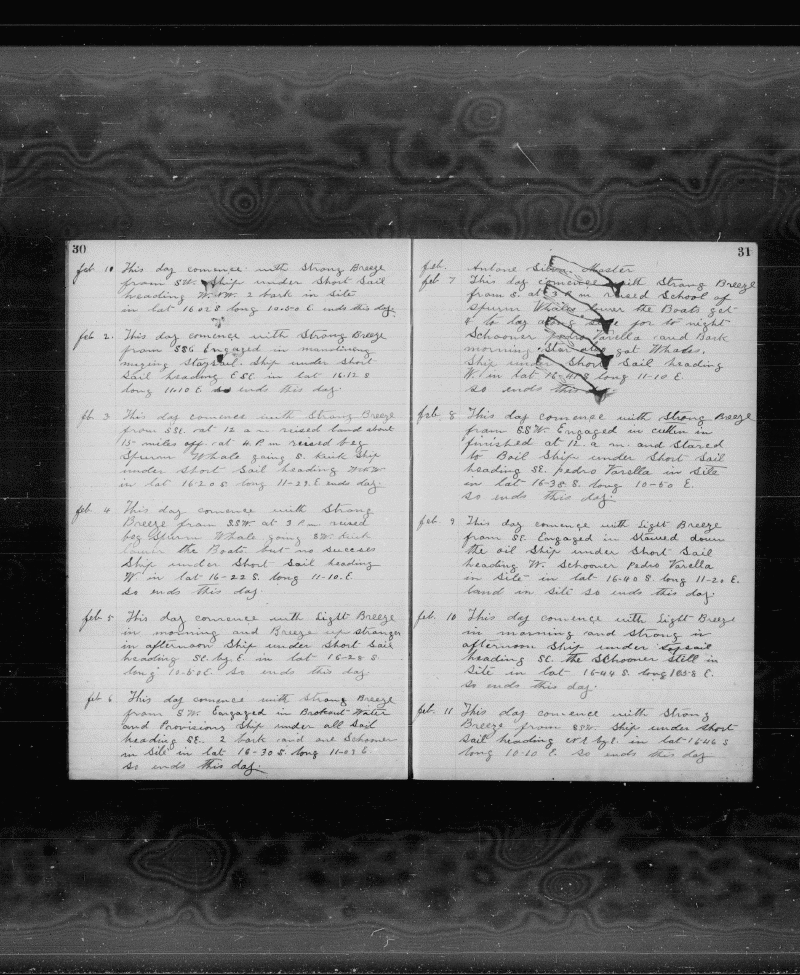 30
feb. 10 This day comence with Strong Breeze
from SW. Ship under Short Sail
heading 2 bark in Site
in lat 16 02 S long 10-50 E. ends this day.
feb 2. This day comence with Strong Breeze
from SSE Engaged in
Staysail. Ship under Short
Sail heading ESE in lat 16.12 S
long 11-10 E so ends this day.
feb 3 This day comence with Strong Breeze
from SSE. at 12 a m raised land about
15 miles off. at 4. P. m raised beg
Spurm Whale going S. Ship
under Short Sail heading
in lat 16-20 S long 11-23. E ends day.
feb. 4 This day comence with Strong
Breeze from SSW. at 3 P. m raised
beg Spurm Whale going SW.
the Boats but no succses
Ship under Short Sail heading
W in lat 16-22 S. long 11-10. E.
so ends this day.
feb 5 This day comence with Light Breeze
in morning and Breeze up stronger
in afternoon Ship under Short Sail
heading SE. by E. in lat 16-28 S
long 10-50 E. So ends this day
feb 6 This day comence with Strong Breeze
from SW. Engaged in Brokout Water
and Provisions Ship under all Sail
heading SE. 2 bark and one Schooner
in Site in lat 16-30 S. long 11-03 E.
so ends this day.
31
feb. Antone Silva. Master
feb 7 This day comence with Strong Breeze
from S. at 3 P. m. raised School of
Spurm Whales lower the Boats get
4 to day along side for to night
Schooner pedro Varella and Bark
morning Star also got Whales.
Ship under Short Sail heading
W. in lat 16-41 S long 11-10 E.
so ends this
feb. 8 This day comence with Strong Breeze
from SSW. Engaged in cutten in
finished at 12. a m. and Stared
to Boil Ship under Short Sail
heading SE. pedro Varella in Site
in lat 16-38 S. long 10-50 E.
so ends this day.
feb. 9 This day comence with Light Breeze
from SE. Engaged in Stowed down
the oil Ship under Short Sail
heading W. Schooner Pedro Varella
in Site in lat 16-40 S. long 11-20 E.
land in Site So ends this day.
feb. 10 This day comence with Light Breeze
in morning and Strong in
afternoon Ship under topsail
heading SE. the Schooner Stell in
Site in lat 16-44 S. long 10-58 E.
so ends this day.
feb. 11 This day comence with Strong
Breeze from SSW. Ship under Short
Sail heading by E. in lat 16 46 S
long 10-10 E. So ends this day